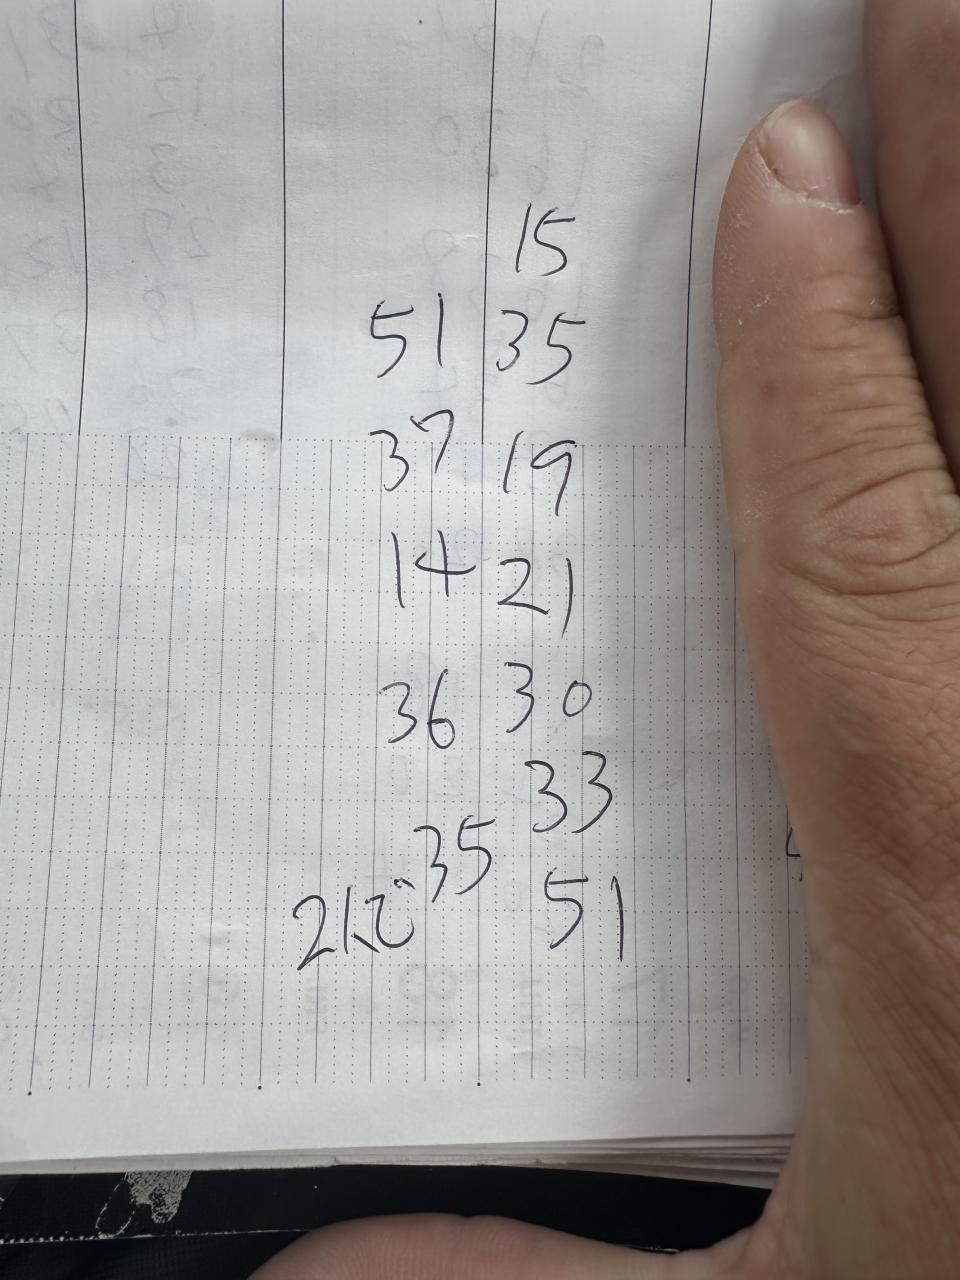 15
51 35
37 19
14 21
36 30
33
35
51